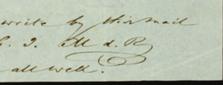 write by this mail
C. J. M d. R
all well.